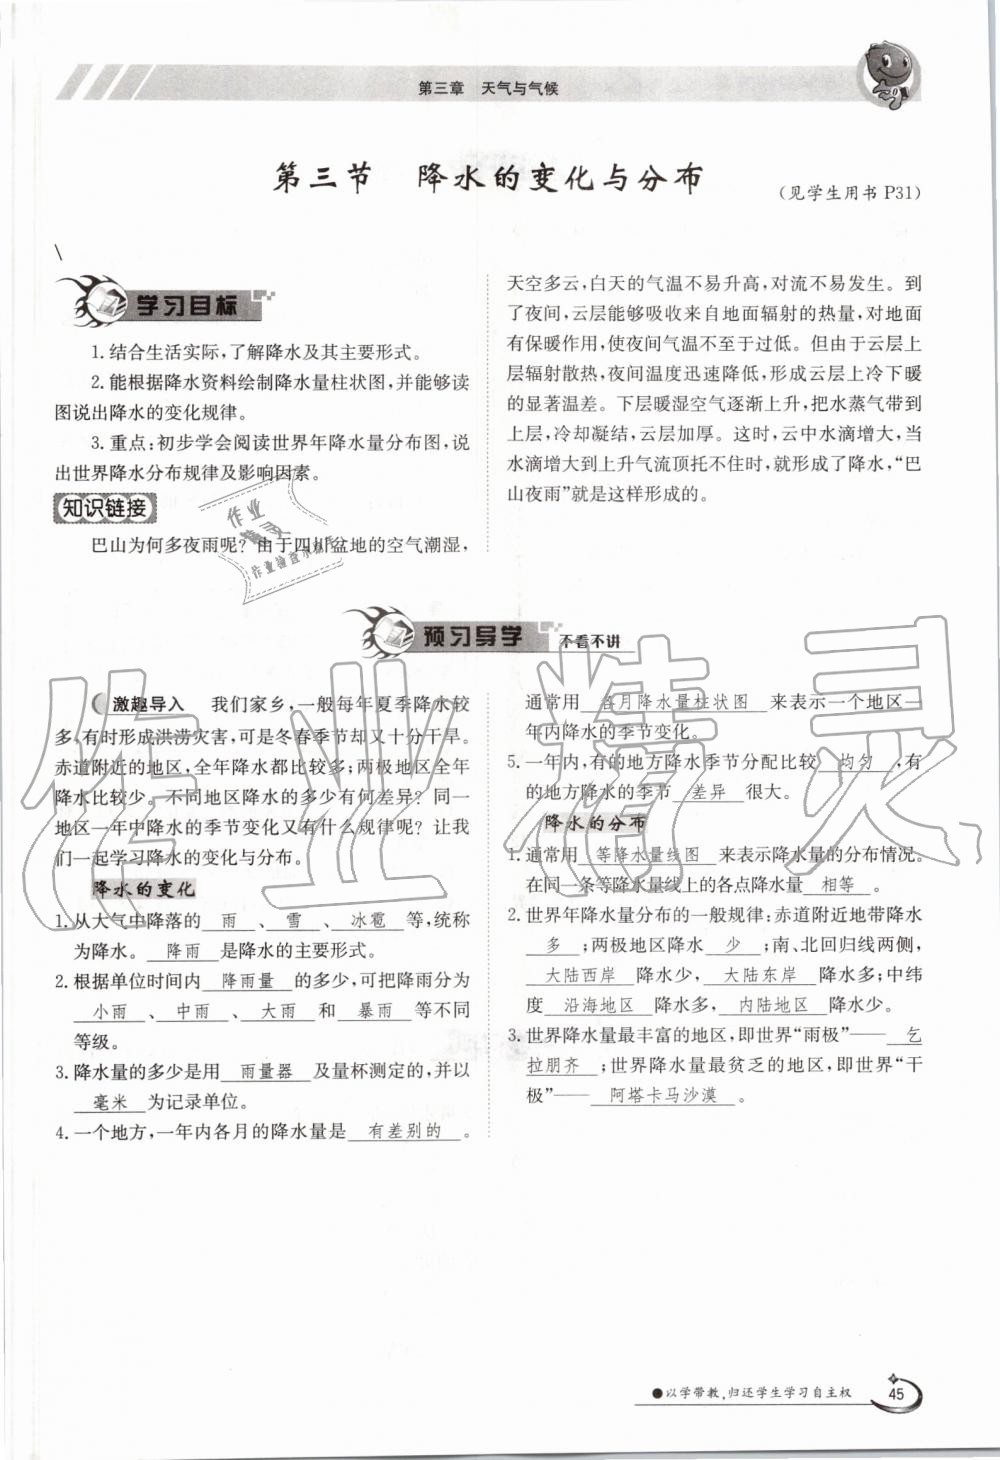 第三章 天气与气候
第三节 降水的变化与分布
(见学生用书 P31)
学习目标
1. 结合生活实际,了解降水及其主要形式。
2. 能根据降水资料绘制降水量柱状图,并能够读
图说出降水的变化规律。
3. 重点:初步学会阅读世界年降水量分布图,说
出世界降水分布规律及影响因素。
知识链接
巴山为何多夜雨呢?由于四川盆地的空气潮湿,
天空多云,白天的气温不易升高,对流不易发生。到
了夜间,云层能够吸收来自地面辐射的热量,对地面
有保暖作用,使夜间气温不至于过低。但由于云层上
层辐射散热,夜间温度迅速降低,形成云层上冷下暖
的显著温差。下层暖湿空气逐渐上升,把水蒸气带到
上层,冷却凝结,云层加厚。这时,云中水滴增大,当
水滴增大到上升气流顶托不住时,就形成了降水,“巴
山夜雨”就是这样形成的。
预习导学 不看不讲
激趣导入 我们家乡,一般每年夏季降水较
多,有时形成洪涝灾害,可是冬春季节却又十分干旱。
赤道附近的地区,全年降水都比较多;两极地区全年
降水比较少。不同地区降水的多少有何差异?同一
地区一年中降水的季节变化又有什么规律呢?让我
们一起学习降水的变化与分布。
降水的变化
1. 从大气中降落的 雨 、 雪 、 冰雹 等,统称
为降水。 降雨 是降水的主要形式。
2. 根据单位时间内 降雨量 的多少,可把降雨分为
小雨 、 中雨 、 大雨 和 暴雨 等不同
等级。
3. 降水量的多少是用 雨量器 及量杯测定的,并以
毫米 为记录单位。
4. 一个地方,一年内各月的降水量是 有差别的 。
通常用 各月降水量柱状图 来表示一个地区一
年内降水的季节变化。
5. 一年内,有的地方降水季节分配比较 均匀 ,有
的地方降水的季节 差异 很大。
降水的分布
1. 通常用 等降水量线图 来表示降水量的分布情况。
在同一条等降水量线上的各点降水量 相等 。
2. 世界年降水量分布的一般规律:赤道附近地带降水
多 ;两极地区降水 少 ;南、北回归线两侧,
大陆西岸 降水少, 大陆东岸 降水多;中纬
度 沿海地区 降水多, 内陆地区 降水少。
3. 世界降水量最丰富的地区,即世界“雨极”—— 乞
拉朋齐 ;世界降水量最贫乏的地区,即世界“干
极”—— 阿塔卡马沙漠 。
作业精灵
作业
精灵
作业检查小帮手
●以学带教,归还学生学习自主权
45